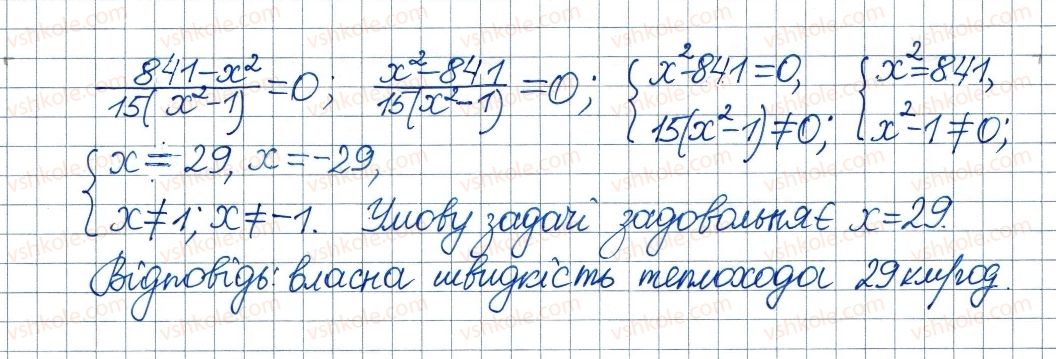 (841-x²)/(15(x²-1))=0; (x²-841)/(15(x²-1))=0; {x²-841=0, 15(x²-1)≠0; {x²=841, x²-1≠0;
{x=29, x=-29,
x≠1; x≠-1. Умову задачі задовольняє x=29.
Відповідь: власна швидкість теплохода 29 км/год.